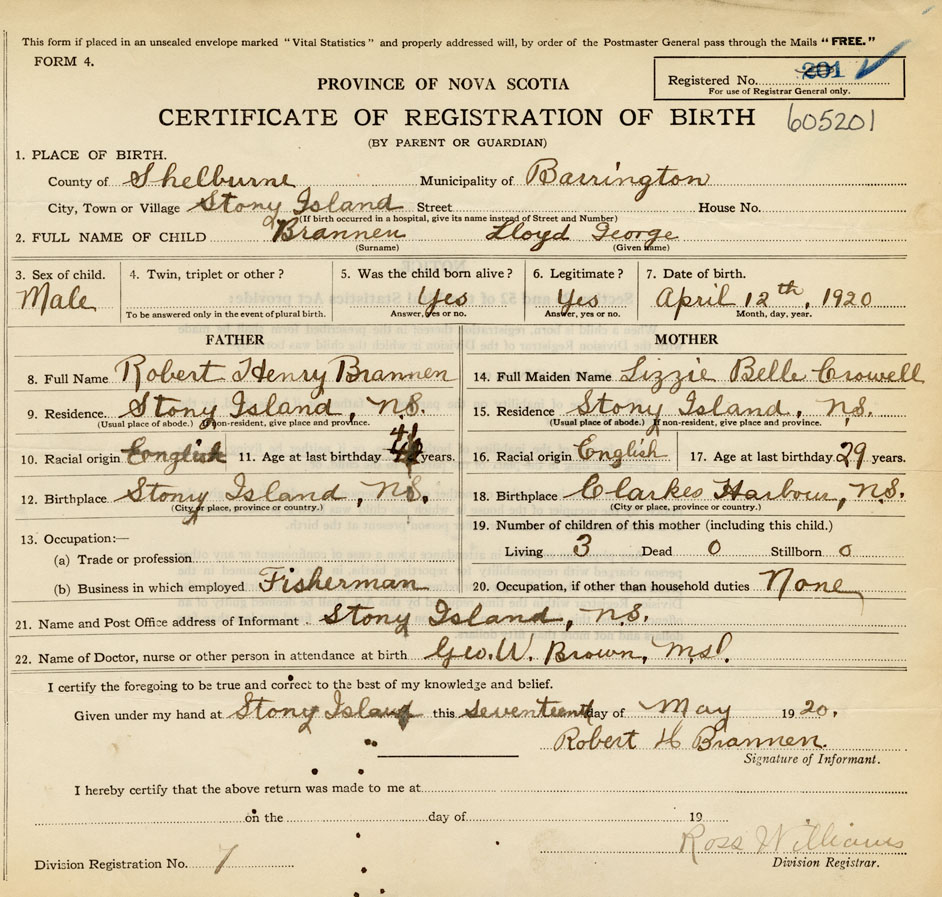 This form if placed in an unsealed envelope marked "Vital Statistics" and properly addressed will, by order of the Postmaster General pass through the Mails "FREE."
FORM 4.
Registered No. 201
For use of Registrar General only.
PROVINCE OF NOVA SCOTIA
CERTIFICATE OF REGISTRATION OF BIRTH 605201
(BY PARENT OR GUARDIAN)
1. PLACE OF BIRTH.
County of Shelburne Municipality of Barrington
City, Town or Village Stony Island Street House No.
(If birth occurred in a hospital, give its name instead of Street and Number)
2. FULL NAME OF CHILD Brannen Lloyd George
(Surname) (Given name)
3. Sex of child. 4. Twin, triplet or other? 5. Was the child born alive? 6. Legitimate? 7. Date of birth.
Male Yes Yes April 12th, 1920
To be answered only in the event of plural birth. Answer, yes or no. Answer, yes or no. Month, day, year.
FATHER MOTHER
8. Full Name Robert Henry Brannen 14. Full Maiden Name Lizzie Belle Crowell
9. Residence. Stony Island, N.S. 15. Residence Stony Island, N.S.
(Usual place of abode.) If non-resident, give place and province. (Usual place of abode.) If non-resident, give place and province.
10. Racial origin English 11. Age at last birthday 41 years. 16. Racial origin English 17. Age at last birthday 29 years.
12. Birthplace Stony Island, N.S. 18. Birthplace Clarkes Harbour, N.S.
(City or place, province or country.) (City or place, province or country.)
13. Occupation:— 19. Number of children of this mother (including this child.)
(a) Trade or profession Living 3 Dead 0 Stillborn 0
(b) Business in which employed Fisherman 20. Occupation, if other than household duties None
21. Name and Post Office address of Informant Stony Island, N.S.
22. Name of Doctor, nurse or other person in attendance at birth Geo. W. Brown, M.D.
I certify the foregoing to be true and correct to the best of my knowledge and belief.
Given under my hand at Stony Island this seventeenth day of May 1920.
Robert H Brannen.
Signature of Informant.
I hereby certify that the above return was made to me at
on the day of 19
Ross Williams
Division Registration No. 7 Division Registrar.